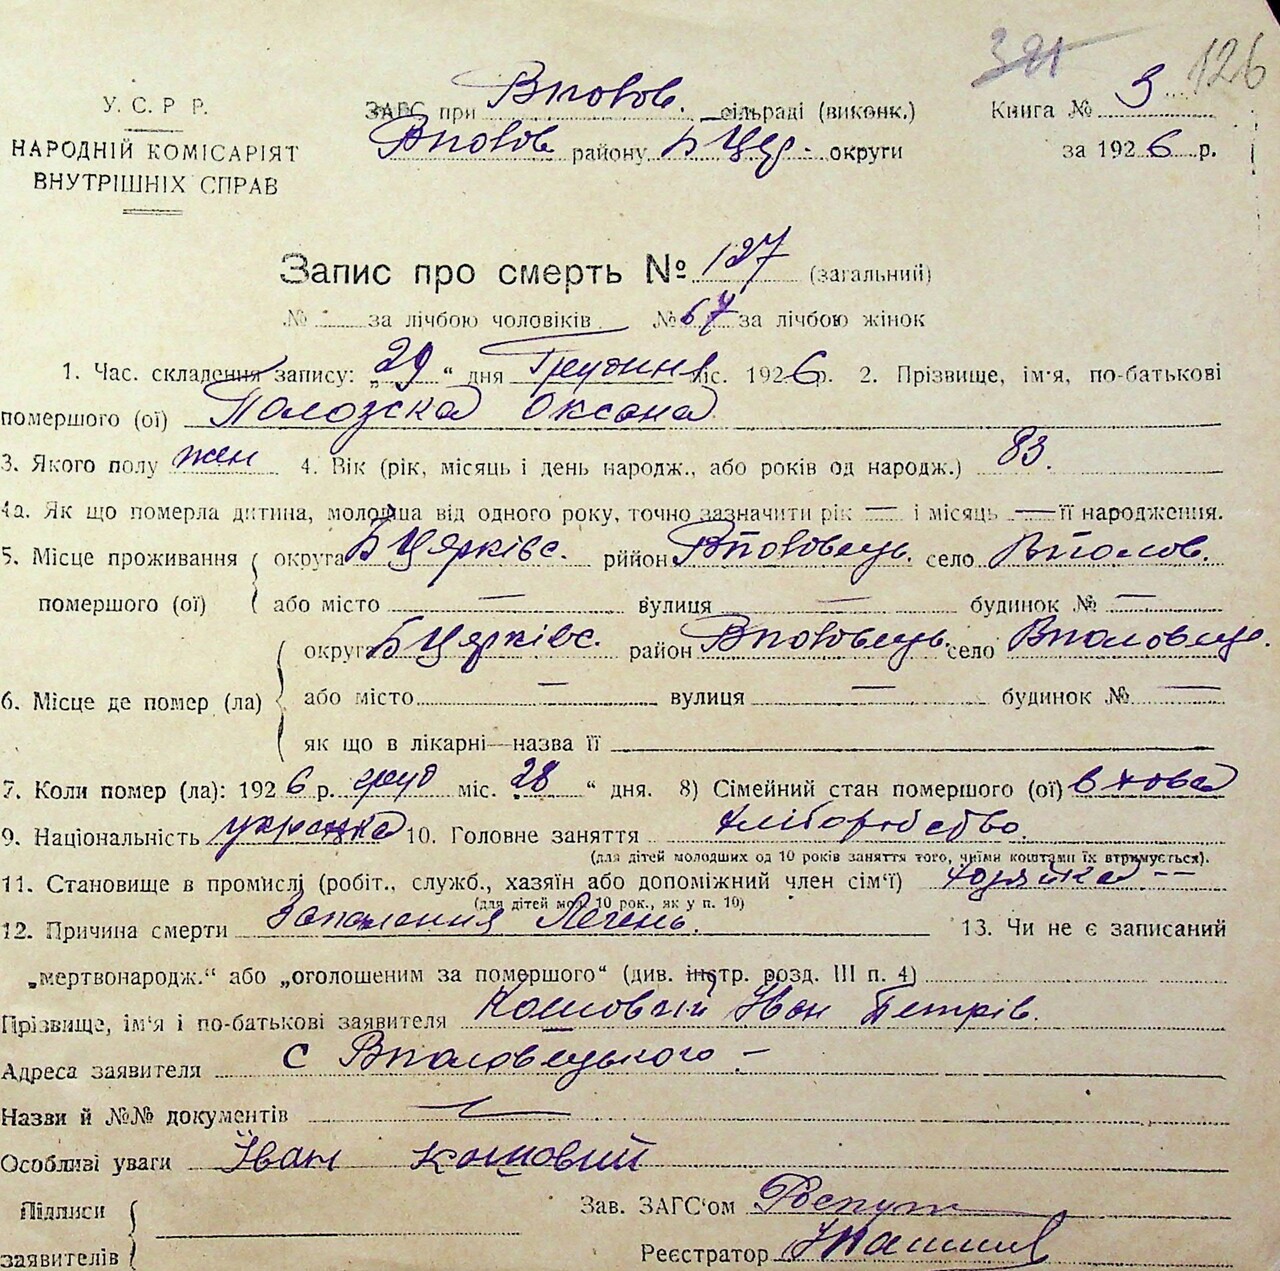 391 126
У. С. Р Р.
НАРОДНІЙ КОМІСАРІЯТ
ВНУТРІШНІХ СПРАВ
ЗАГС при Вполов. сільраді (виконк.)
Вполов району БЦер. округи
Книга № 3
за 1926 р.
Запис про смерть № 127 (загальний)
№ за лічбою чоловіків № 67 за лічбою жінок
1. Час. складення запису: „29“ дня Грудня міс. 1926 р. 2. Прізвище, ім'я, по-батькові
помершого (ої) Полозска Оксана
3. Якого полу жен 4. Вік (рік, місяць і день народж., або років од народж.) 83.
4а. Як що померла дитина, молодша від одного року, точно зазначити рік — і місяць — її народження.
5. Місце проживання округа БЦерківс. рийон Вполовець. село Вполов.
помершого (ої) або місто — вулиця — будинок № —
округа БЦерківс. район Вполовець. село Вполовец.
6. Місце де помер (ла) або місто — вулиця — будинок № —
як що в лікарні—назва її
7. Коли помер (ла): 1926 р. груд міс. 28 “ дня. 8) Сімейний стан помершого (ої) вдова
9. Національність українка 10. Головне заняття хліборобство.
(для дітей молодших од 10 років заняття того, чиїми коштами їх втримується).
11. Становище в промислі (робіт., служб., хазяїн або допоміжний член сім'ї) хазяйка --
(для дітей мол. 10 рок., як у п. 10)
12. Причина смерти Запалення Легень. 13. Чи не є записаний
„мертвонародж.“ або „оголошеним за помершого“ (див. інстр. розд. III п. 4)
Прізвище, ім'я і по-батькові заявителя Кошовий Іван Петрів.
Адреса заявителя с Вполовецького —
Назви й №№ документів
Особливі уваги Іван кошовий
Підписи
заявителів
Зав. ЗАГС'ом
Реєстратор